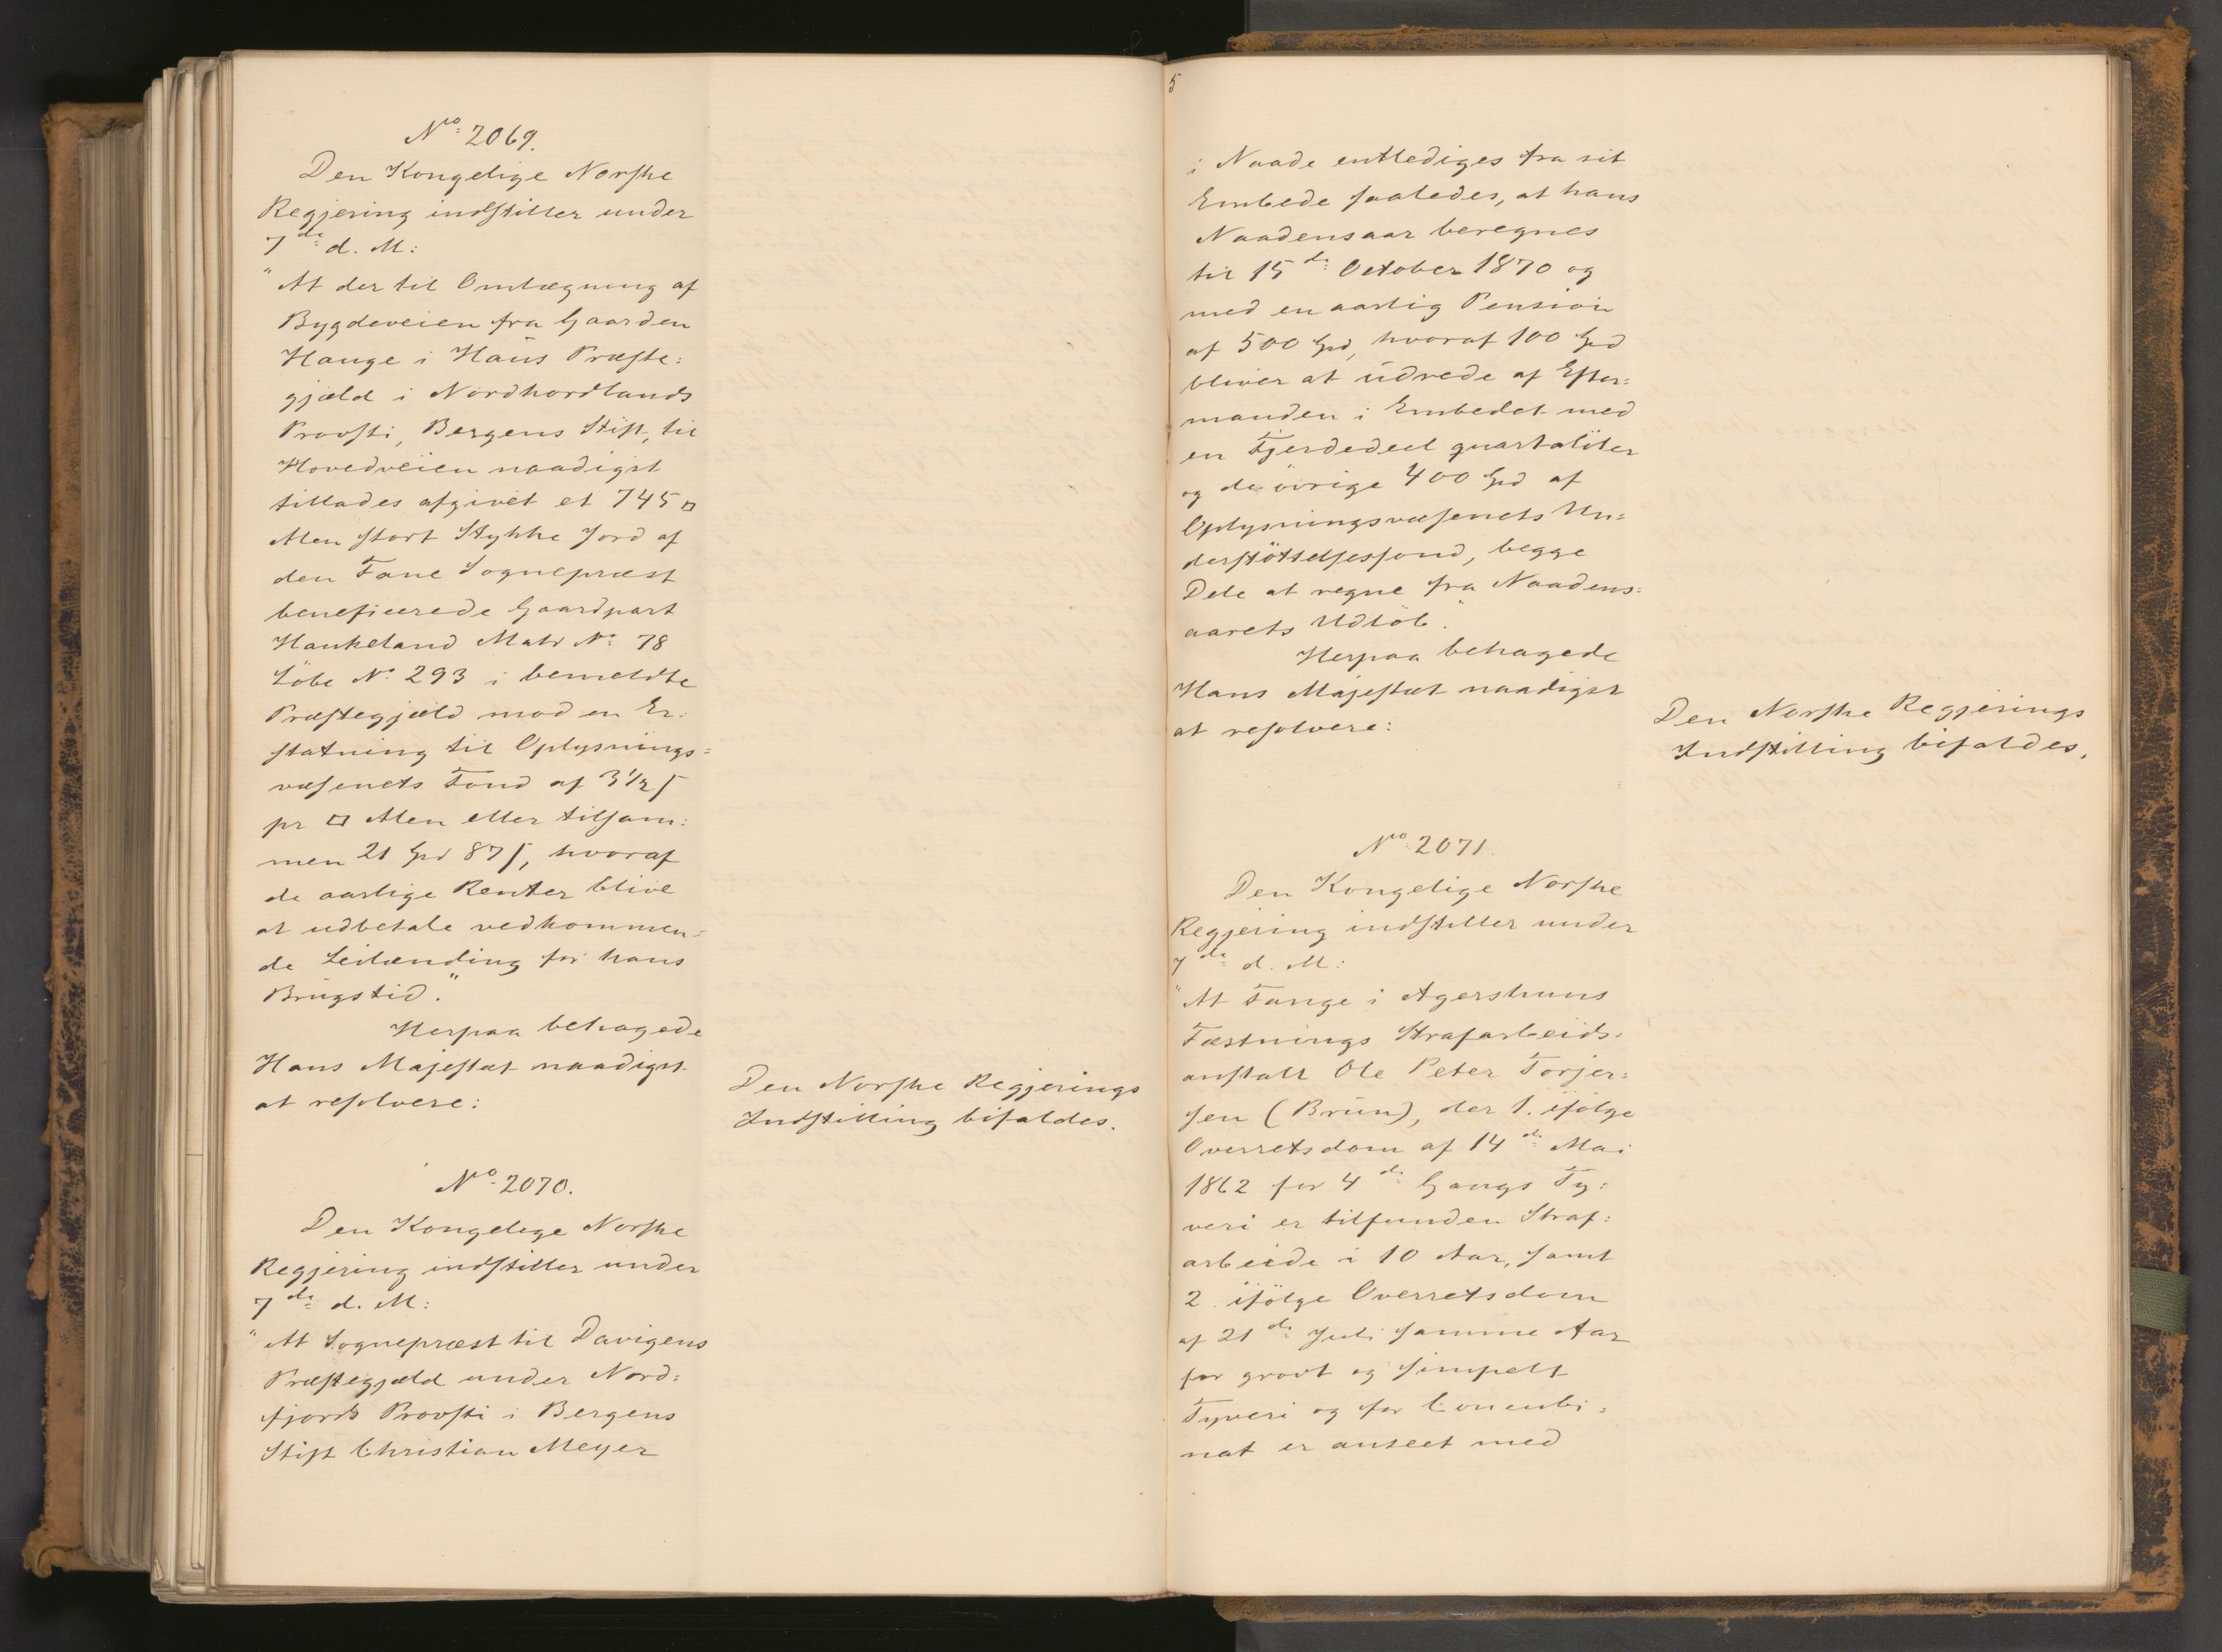 No 2069.
Den Kongelige Norske
Regjering indstiller under
7de d. M:
"At der til Omlægning af
Bygdeveien fra Gaarden
Hauge i Haus Præste:
gjæld i Nordhordlands
Provsti, Bergens Stift, til
Hovedveien naadigst
tillades afgivet et 745 □
Alen stort Stykke Jord af
den Fane Sognepræst
beneficerede Gaardpart
Haukeland Matr No 78
Löbe No 293 i bemeldte
Præstegjæld mod en Er:
statning til Oplysnings=
væsenets Fond af 3 1/2 ſ
pr □ Alen eller tilsam:
men 21 Spd 87 ſ, hvoraf
de aarlige Renter blive
at udbetale vedkommen=
de Leilænding for hans
Brugstid."
Herpaa behagede
Hans Majestæt naadigst
at resolvere:
Den Norske Regjerings
Indstilling bifaldes.
No 2070.
Den Kongelige Norske
Regjering indstiller under
7de d. M:
"At Sognepræst til Davigens
Præstegjæld under Nord:
fjords Provsti i Bergens
Stift Christian Meyer
5
i Naade entlediges fra sit
Embede saaledes, at hans
Naadensaar beregnes
til 15de October 1870 og
med en aarlig Pension
af 500 Spd, hvoraf 100 Spd
bliver at udrede af Efter=
manden i Embedet med
en Fjerdedeel quartaliter
og de övrige 400 Spd af
Oplysningsvæsenets Un=
derstöttelsesfond, begge
Dele at regne fra Naadens=
aarets Udlöb."
Herpaa behagede
Hans Majestæt naadigst
at resolvere:
Den Norske Regjerings
Indstilling bifaldes.
No 2071.
Den Kongelige Norske
Regjering indstiller under
7de d. M:
"At Fange i Agershuus
Fæstnings Strafarbeids-
anstalt Ole Peter Torjer=
sen (Brun), der 1. ifölge
Overretsdom af 14de Mai
1862 for 4de Gangs Ty=
veri er tilfunden Straf:
arbeide i 10 Aar, samt
2. ifölge Overretsdom
af 21de Juli samme Aar
for grovt og simpelt
Tyveri og for Concubi=
nat er anseet med